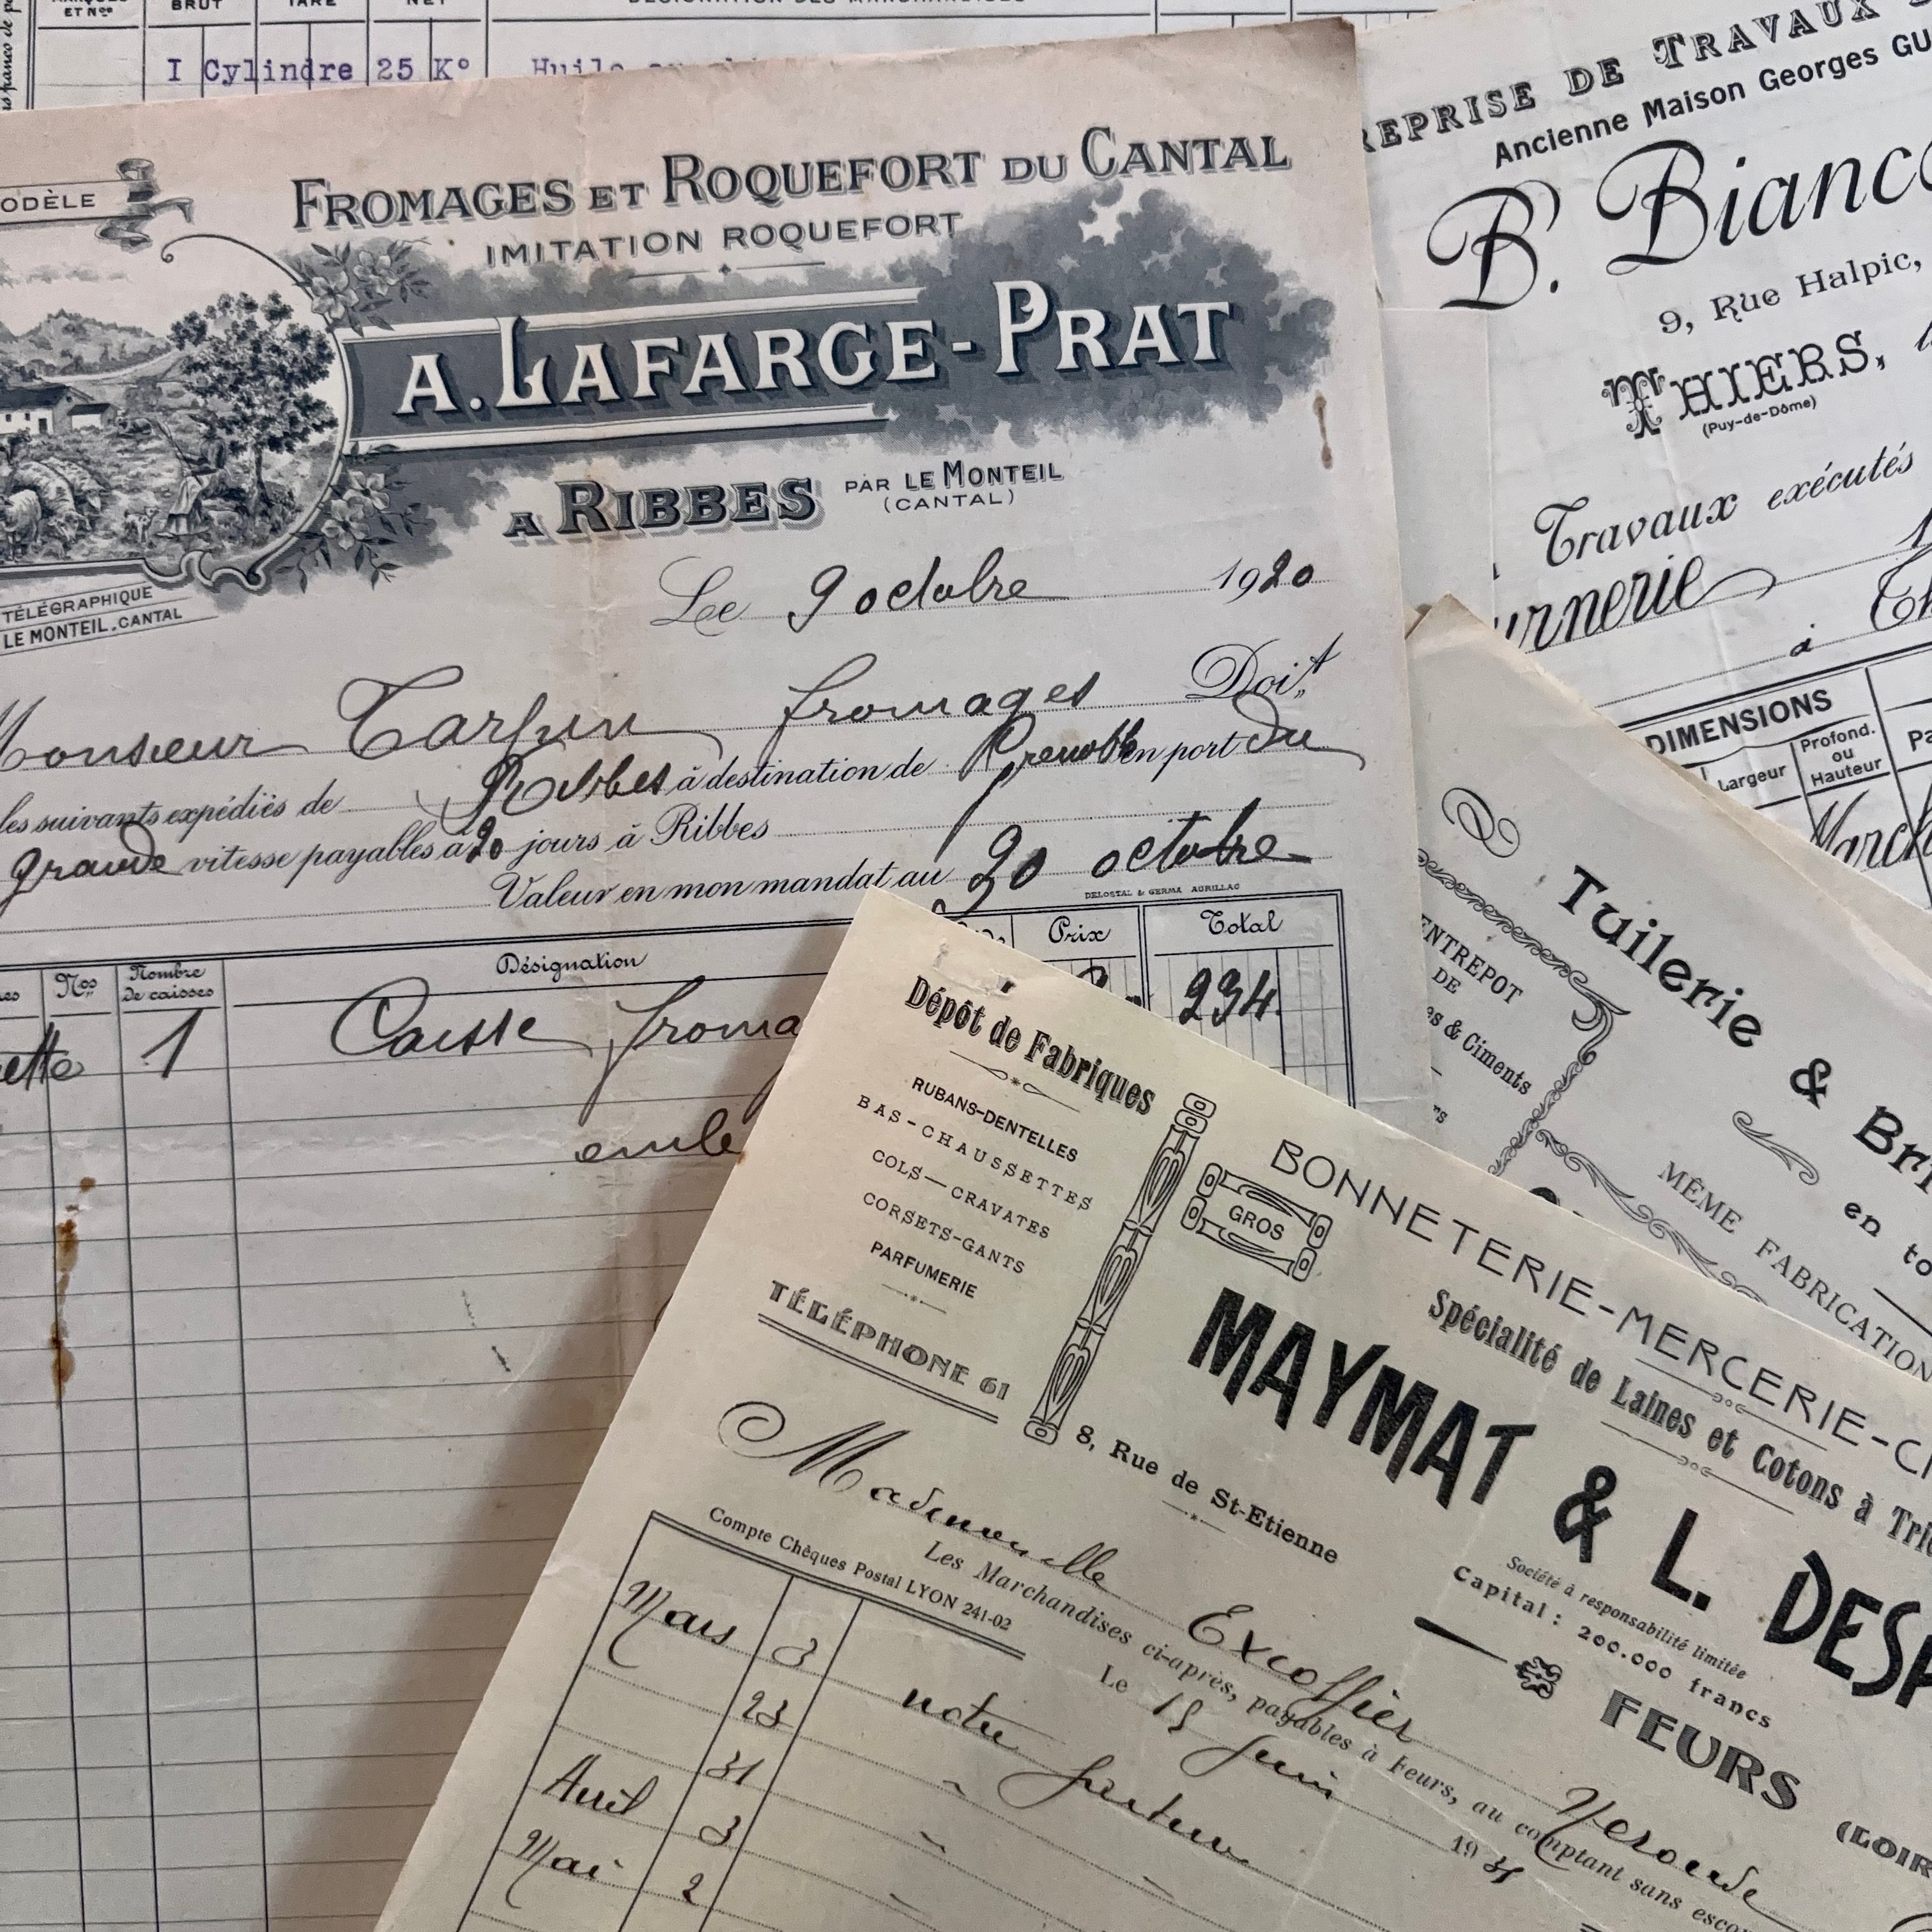 ET Nos
BRUT
TARE
NET
DÉSIGNATION DES MARCHANDISES
I Cylindre 25 K°
ODÈLE
FROMAGES ET ROQUEFORT DU CANTAL
IMITATION ROQUEFORT
A. LAFARGE-PRAT
A RIBBES PAR LE MONTEIL
(CANTAL)
TÉLÉGRAPHIQUE
LE MONTEIL.CANTAL
Le 9 octobre 1920
Monsieur fromages Doit
les suivants expédiés de Ribbes à destination de Grenoble en port Du
grande vitesse payables à 20 jours à Ribbes
Valeur en mon mandat au 30 octobre
DELOSTAL & GERMA AURILLAC
Nos
Nombre
de caisses
Désignation
Prix
Total
ette 1 Caisse froma 234
REPRISE DE TRAVAUX
Ancienne Maison Georges GU
B. Bianc
9, Rue Halpic,
THIERS,
(Puy-de-Dôme)
Travaux exécutés
urnerie
à Th
DIMENSIONS
Largeur
Profond.
ou
Hauteur
Pa
March
Tuilerie & Bri
ENTREPOT
DE
es & Ciments
en to
MÊME FABRICATION
Dépôt de Fabriques
RUBANS-DENTELLES
BAS-CHAUSSETTES
COLS—CRAVATES
CORSETS-GANTS
PARFUMERIE
TÉLÉPHONE 61
GROS
BONNETERIE-MERCERIE-C
Spécialité de Laines et Cotons à Tric
MAYMAT & L. DESP
8, Rue de St-Etienne
Société à responsabilité limitée
Capital : 200.000 francs
FEURS (LOIR
Mademoiselle Excoffier
Les Marchandises ci-après, payables à Feurs, au comptant sans esco
Compte Chèques Postal LYON 241-02
Le 15 Juin 19
Mars 3 notre facture
23
31
Avril 3
Mai 2